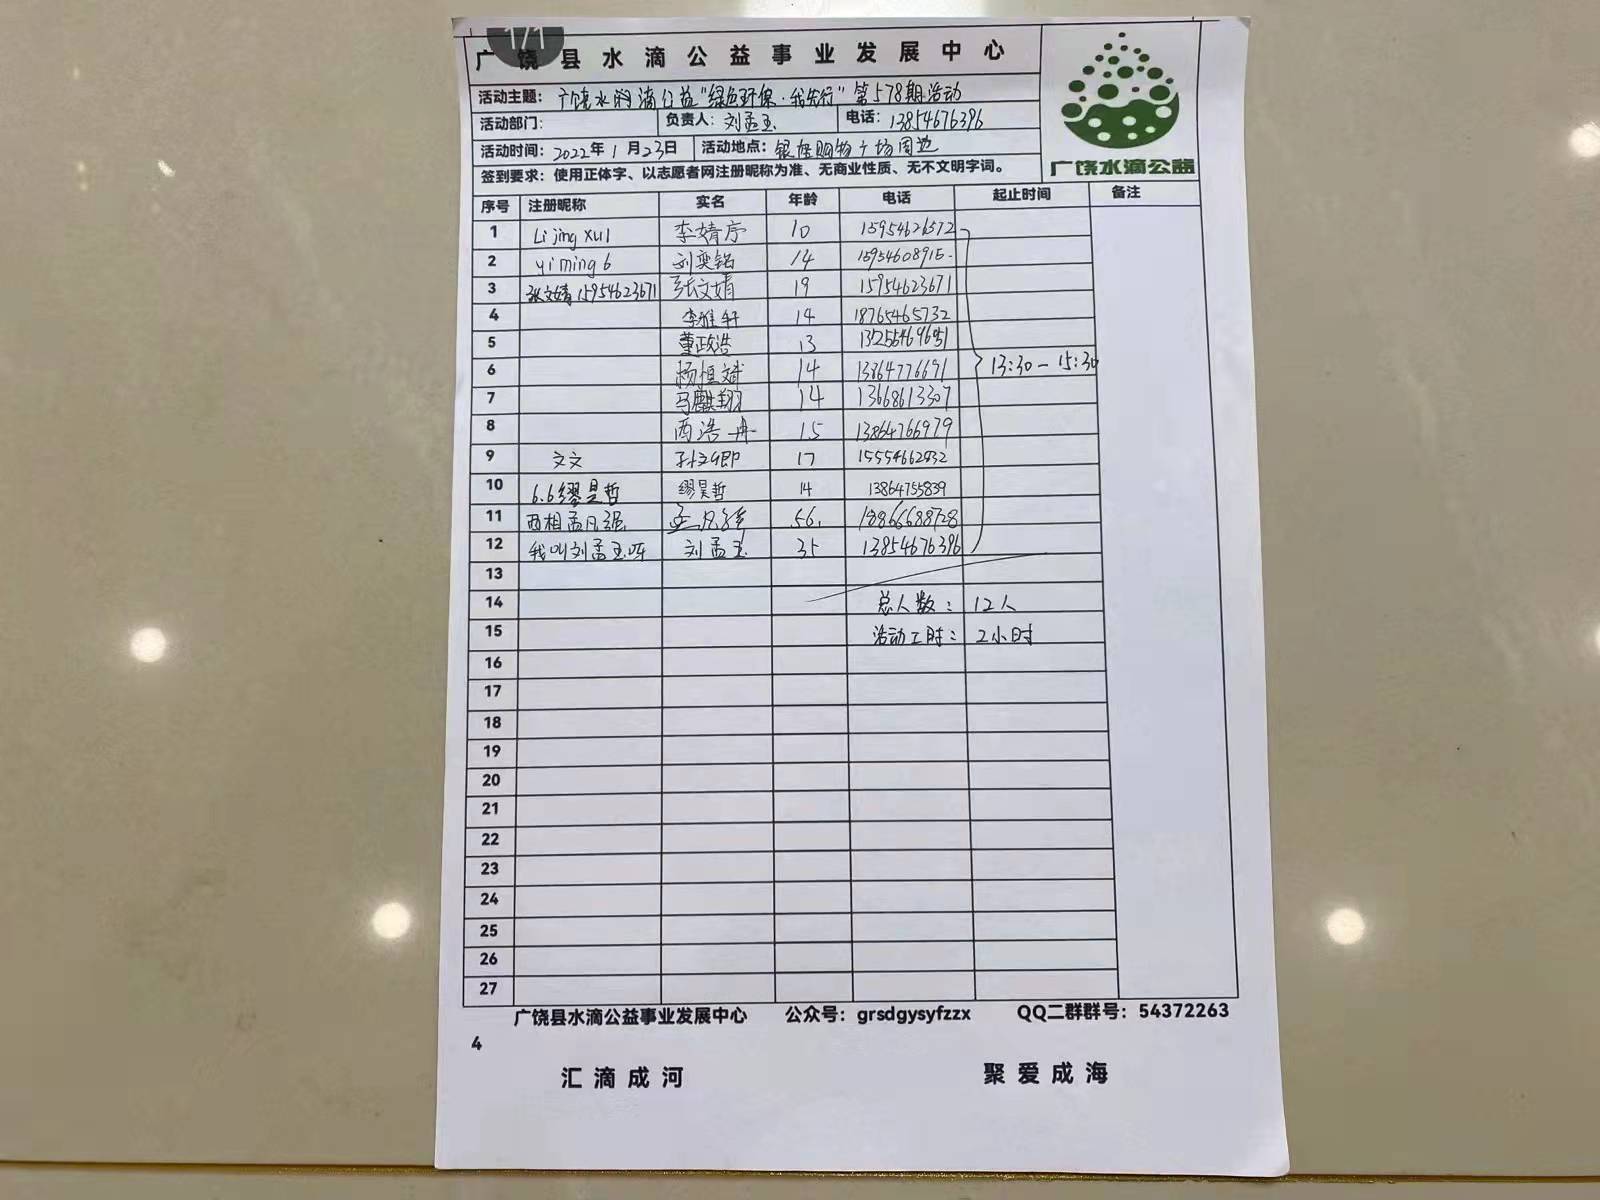 1/1
广饶县水滴公益事业发展中心
活动主题：广饶水滴公益"绿色环保·我先行"第578期活动
活动部门： 负责人：刘孟玉 电话：13854676396
活动时间：2022年1月23日 活动地点：银座购物广场周边
签到要求：使用正体字、以志愿者网注册昵称为准、无商业性质、无不文明字词。
广饶水滴公益
序号 注册昵称 实名 年龄 电话 起止时间 备注
1 Lijingxu1 李婧序 10 15954626572
2 yiming6 刘奕铭 14 15954608915
3 张文婧15954623671 张文婧 19 15954623671
4 李雅轩 14 18765465732
5 董政浩 13
6 杨恒斌 14 13864776691 13:30—15:30
7 马麒翔 14 13668613307
8 西浩冉 15 13864766979
9 文文 17 15554662932
10 6.6缪昊哲 缪昊哲 14 13864755839
11 西相孟凡强 孟凡强 56. 18866688728
12 我叫刘孟玉呀 刘孟玉 35 13854676396
13
14 总人数：12人
15 活动工时：2小时
16
17
18
19
20
21
22
23
24
25
26
27
广饶县水滴公益事业发展中心 公众号：grsdgysyfzzx QQ二群群号：54372263
4
汇滴成河 聚爱成海